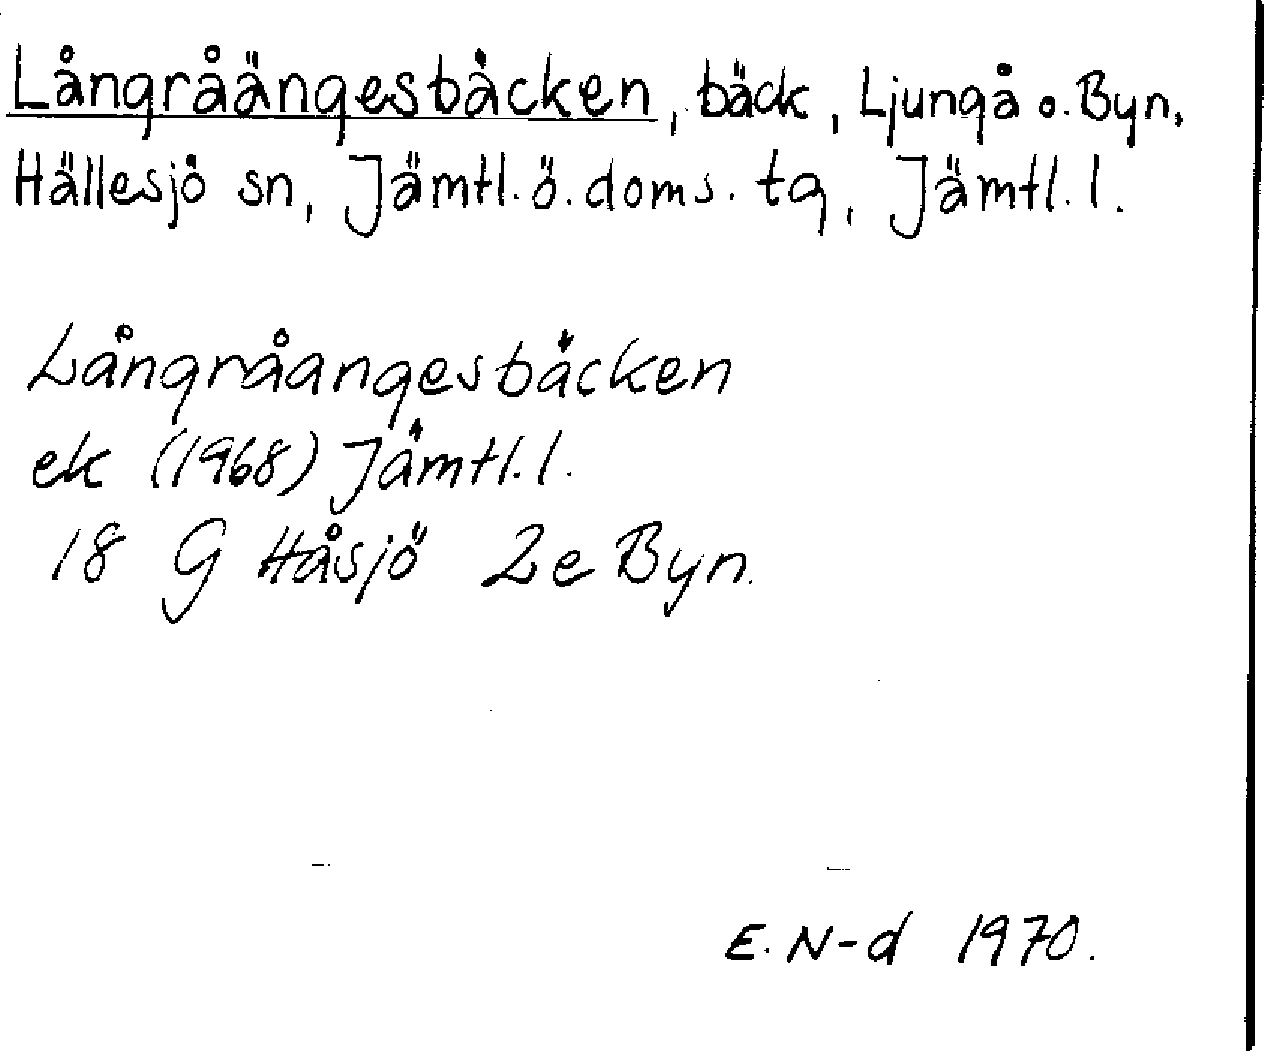 Långråängesbäcken, bäck, Ljungå o. Byn,
Hällesjö sn, Jämtl. ö. doms. tg, Jämtl. l.
Långråangesbäcken
ek (1968) Jämtl. l.
18 G Håsjö 2e Byn.
E. N-d 1970.